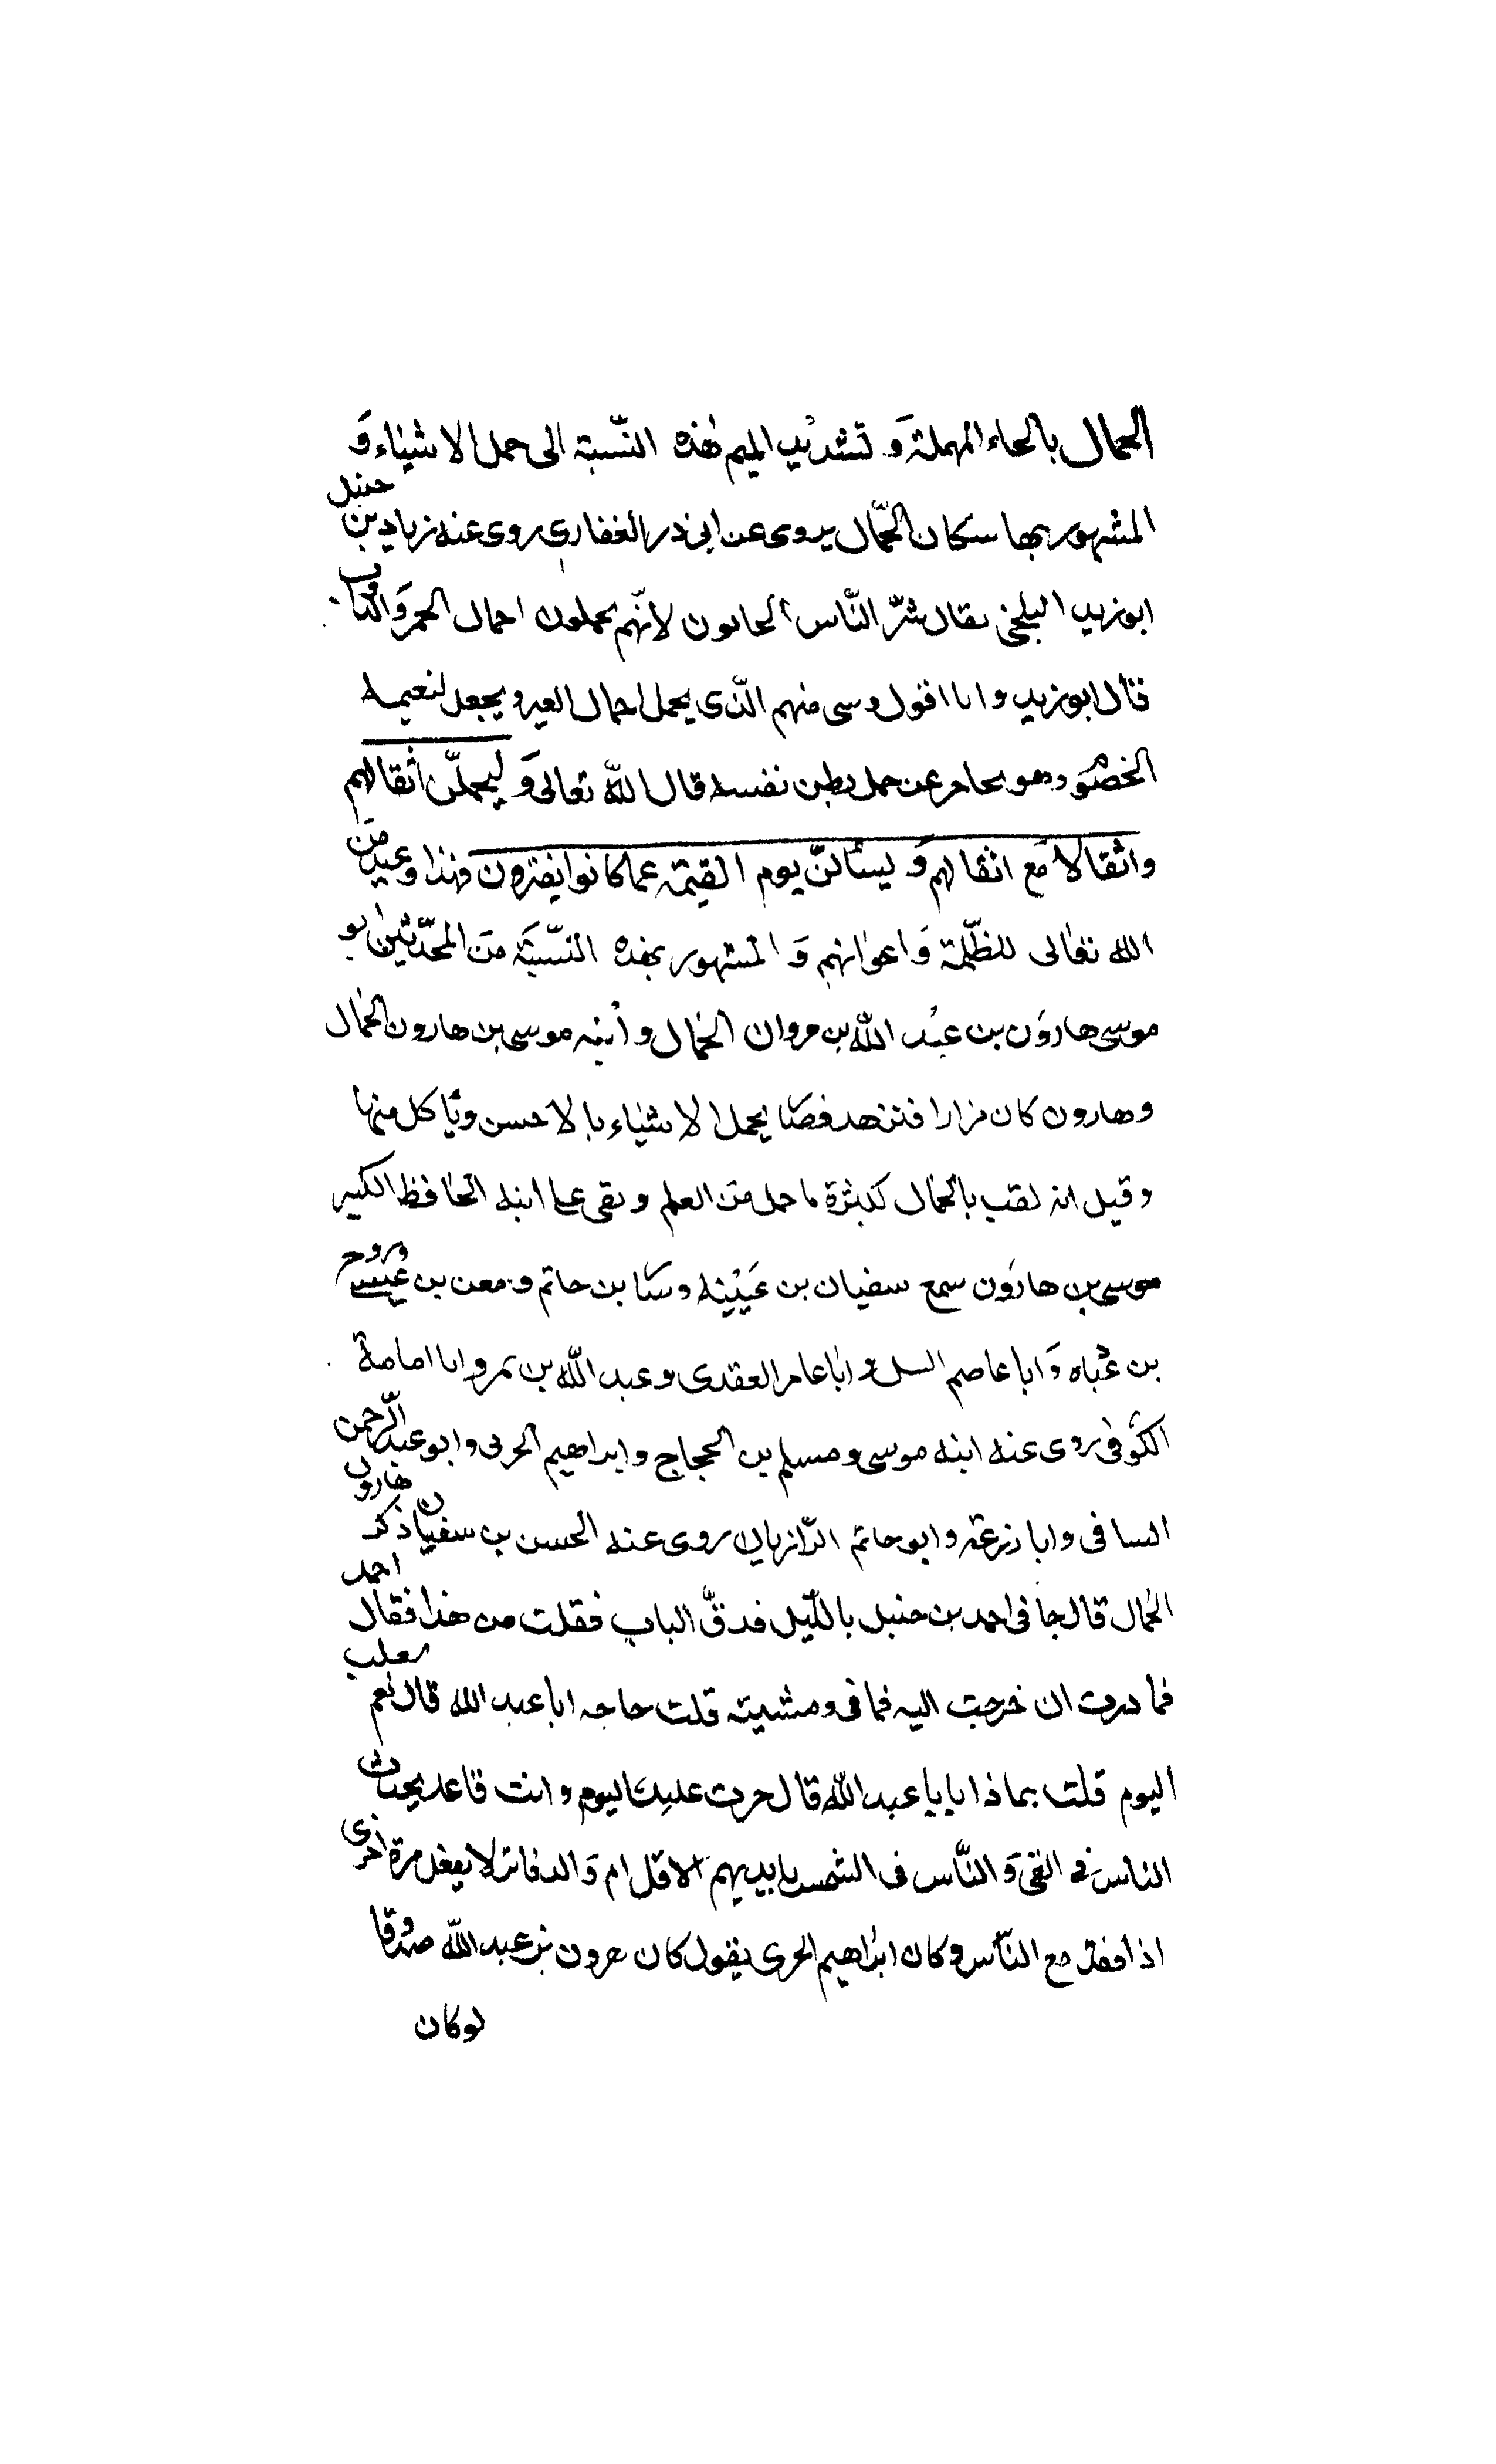 الحمال بالحاء المهملة وَ تشديد الميم هذه النّسبة الى حمل الاشياء وَ
المشهور بها سكان الحمّال يروى عن ابى ذر الغفارى روى عنه زياد بن حنبل
ابو زيد البلخى يقال شرّ النّاس الحمالون لانّهم يحملون احمال الحمر وَالدّواب
قال ابو زيد وانا اقول وسى منهم الّذى يحمل احمال العير و يجعل لنعيمه
الخصو وهو بحا مرعن حمل بطن نفسه قال اللّه تعالى وَ ليحملنّ اثقالهم
واثقالا مَع اثقالهم وَ ليسألنّ يوم القيمة عما كانوا يفترون فهذا وعيد من
الله تعالى للظّلمة وَ اعوانهم وَ المشهور بهذه النّسبَة منَ المحدّثين ابو
موسى هارون بن عبد اللّه بن مروان الحمال و ابنه موسى بن هارون الحمال
وهارون كان بزازا فتزهد فصار يحمل الاشياء بالاحسن ويأكل منها
وقيل انه لقب بالحمال لكثرة ما حمل من العلم وبقى على ابنه الحافظ الكبير
موسى بن هارون سمع سفيان بن عَيَيْنه و سيّا بن حاتم و معن بن عيسى وروح
بن عباه وَ ابا عاصم السل و ابا عامر العقدى وعبد اللّه بن نمر و ابا امامة
الكوفى روى عنه ابنه موسى ومسلم بن الحجاج وابراهيم الحربى وابو عبد الرّحمن
النسافى وابا زرعة وابو حاتم الرّازيان روى عنه الحسن بن سفيان ذكر هارون
الحمال قال جانى احمد بن حنبل بالليّل فدقّ الباب فقلت من هذا فقال احمد
فما درت ان خرجت اليه فما فى ومشيته قلت حاجه ابا عبد الله قال نعم
اليوم قلت بماذا يا با عبد اللّه قال حرت عليك اليوم وانت قاعد يحدث
الناس فى الفى وَ النّاس فى الشمس بايديهم الاقلام وَ الدفاتر لا يفعل مرة اخرى
اذا قعدت مع النّاس و كان ابراهيم الحربى يقول كان هرون بن عبد اللّه صدوقا
لو كان